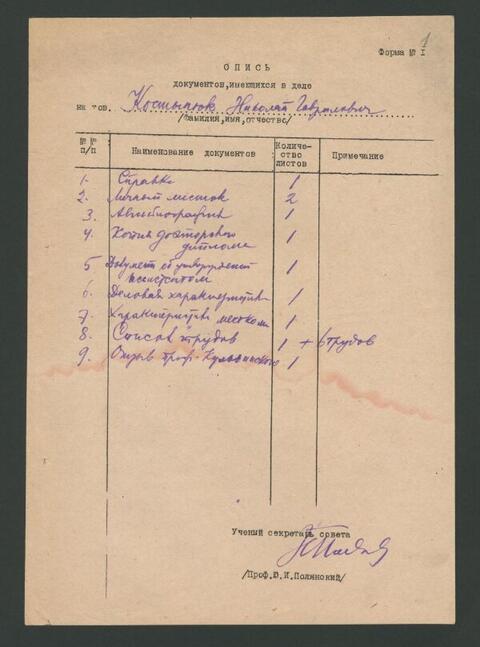 1
Форма № I
О П И С Ь
документов, имеющихся в деле
на тов. Костылюк Николай Гаврилович
/фамилия, имя, отчество/
№№ п/п Наименование документов Количество листов Примечание
1. Справка 1
2. Личный листок 2
3. Автобиография 1
4. Копия докторского
диплома 1
5 Документ об утверждении
ассистентом 1
6. Деловая характеристика 1
7. Характеристика месткома 1
8. Список трудов 1 + 6 трудов
9. Отзыв проф. 1
Ученый секретарь совета
/Проф. Полянский/